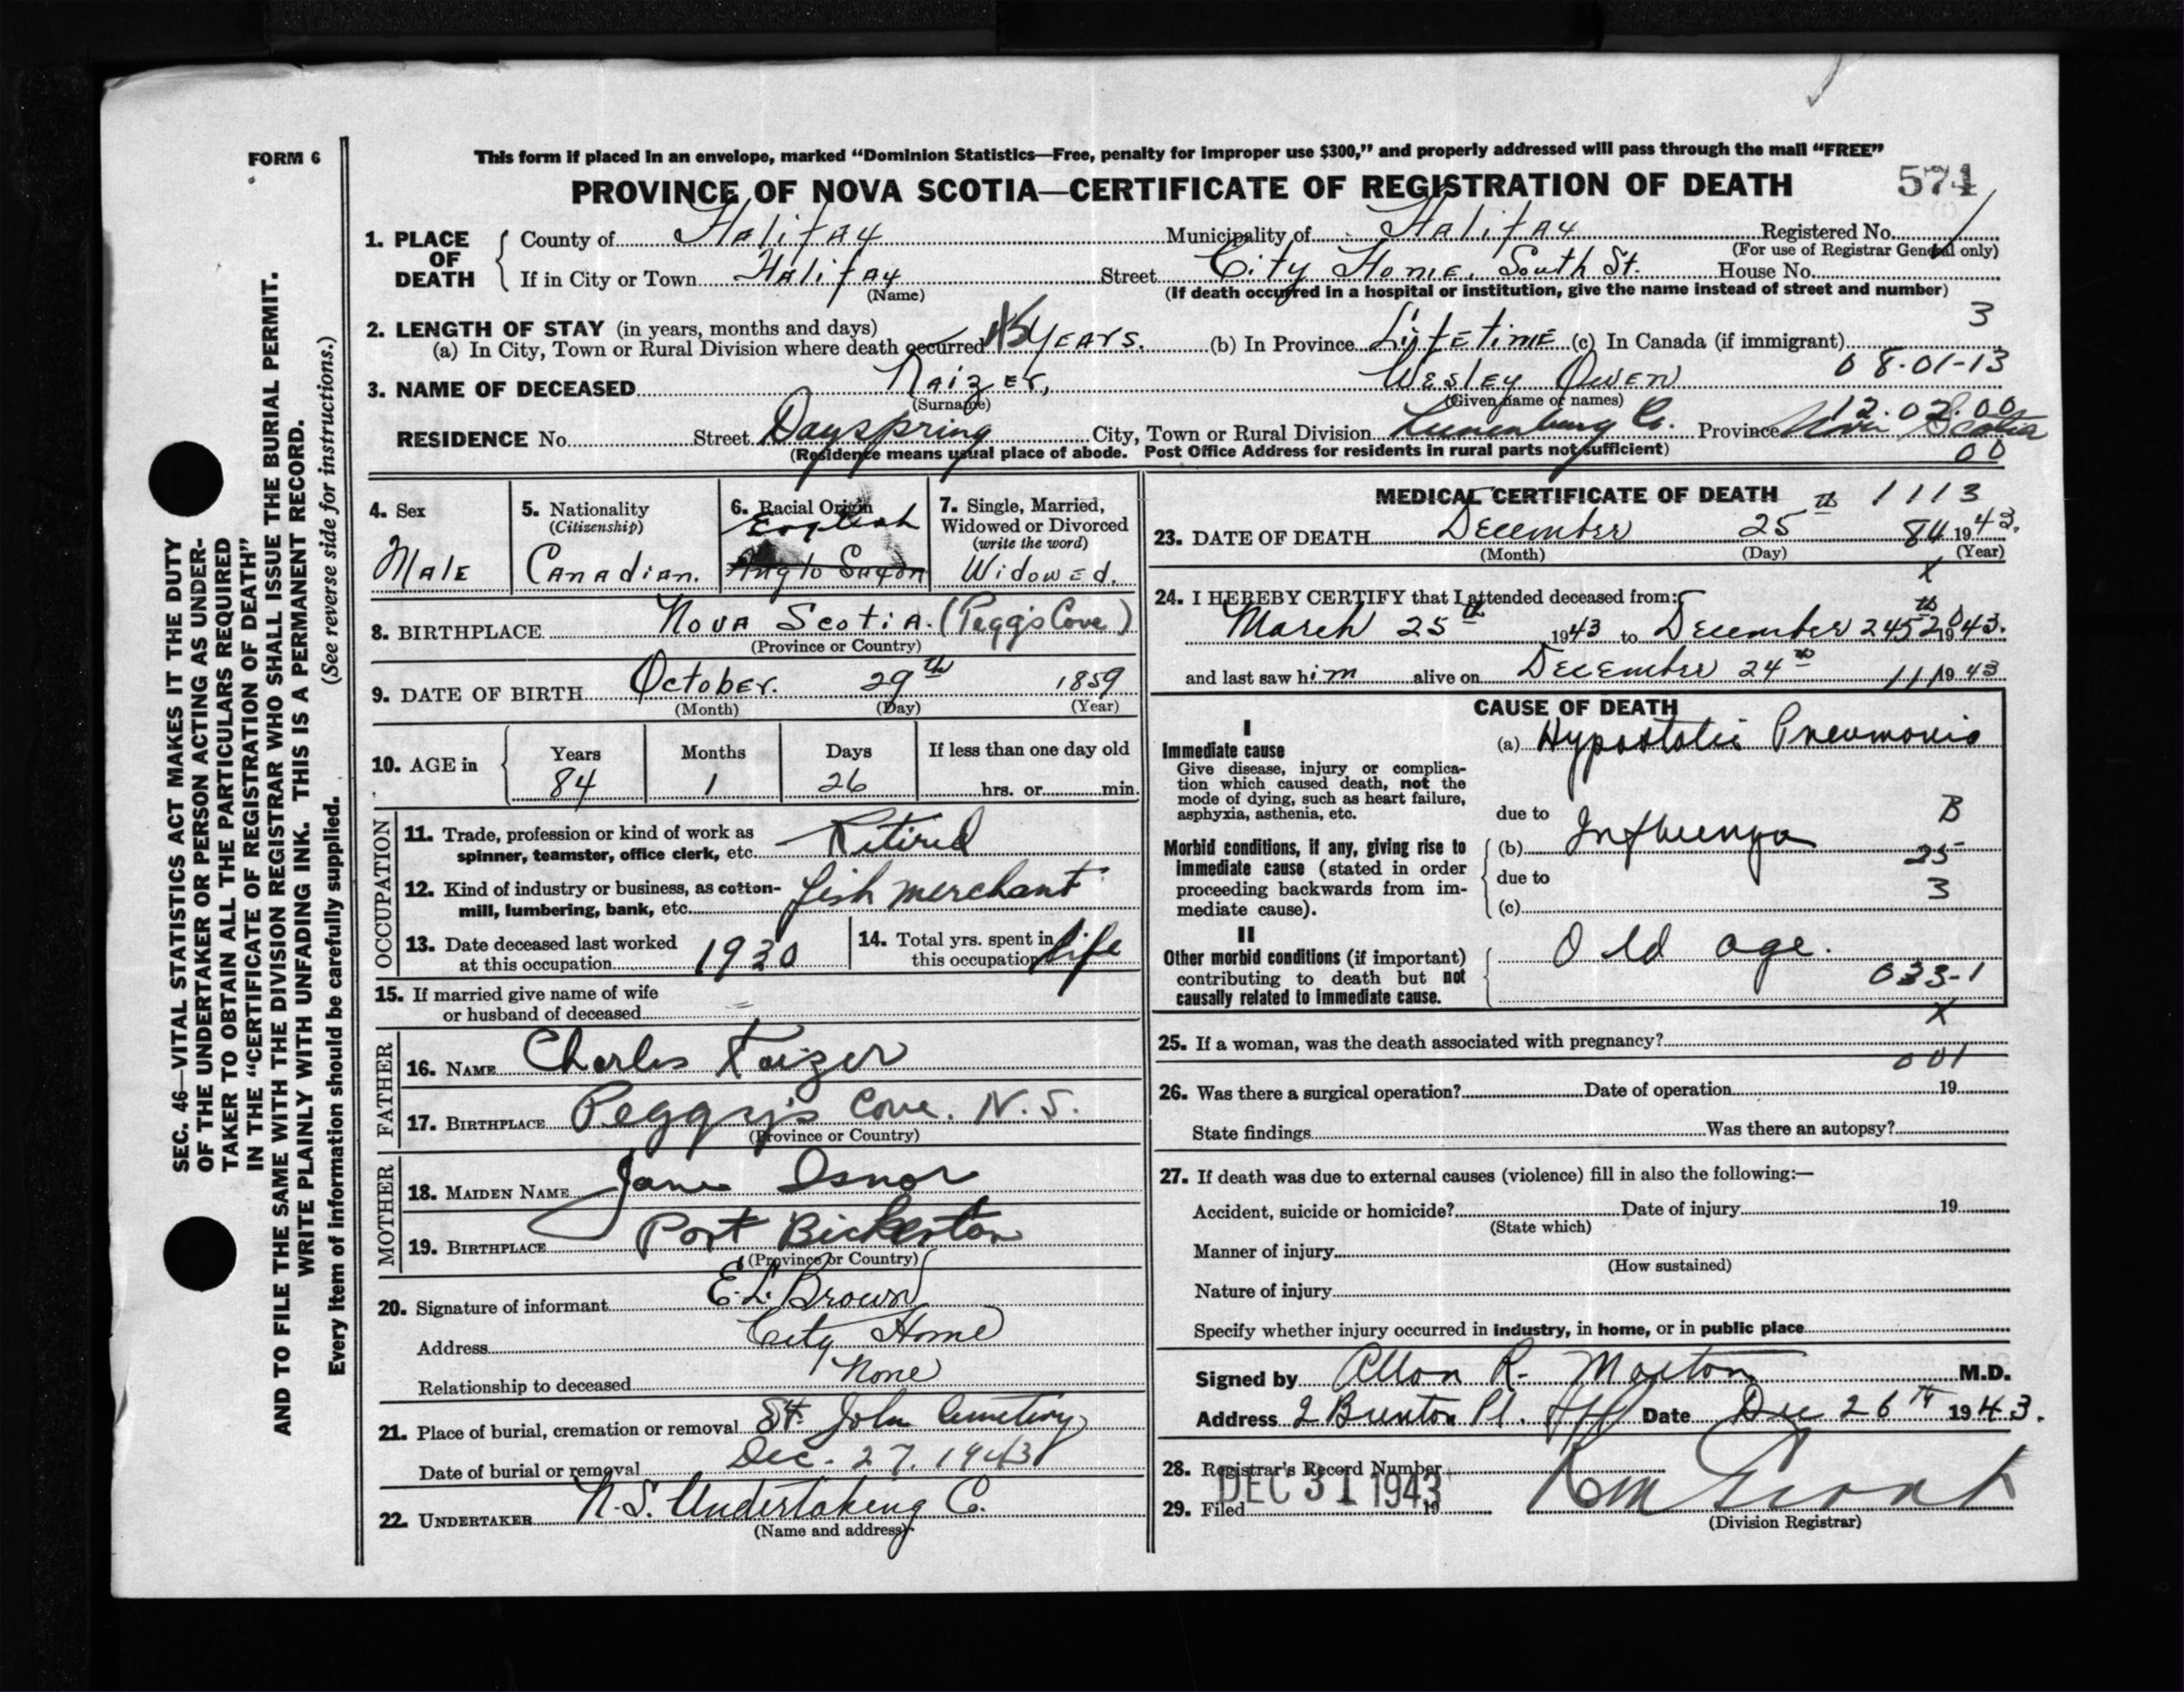 FORM 6
This form if placed in an envelope, marked “Dominion Statistics—Free, penalty for improper use $300,” and properly addressed will pass through the mail “FREE”
PROVINCE OF NOVA SCOTIA—CERTIFICATE OF REGISTRATION OF DEATH
574
1. PLACE OF DEATH
County of Halifax Municipality of Halifax Registered No.
(For use of Registrar General only)
If in City or Town Halifax Street City Home, South St. House No.
(Name) (If death occurred in a hospital or institution, give the name instead of street and number)
3
2. LENGTH OF STAY (in years, months and days)
(a) In City, Town or Rural Division where death occurred YEARS. (b) In Province LifEtimE (c) In Canada (if immigrant)
08-01-13
3. NAME OF DECEASED WEslEy OwEn
(Surname) (Given name or names)
12.02.00
RESIDENCE No. Street Dayspring City, Town or Rural Division Lunenburg Co. Province Nova Scotia
(Residence means usual place of abode. Post Office Address for residents in rural parts not sufficient)
00
4. Sex
MalE
5. Nationality
(Citizenship)
Canadian.
6. Racial Origin
English
Anglo Saxon
7. Single, Married,
Widowed or Divorced
(write the word)
WidowEd.
8. BIRTHPLACE Nova Scotia. (Peggs Cove)
(Province or Country)
9. DATE OF BIRTH October. 29th 1859
(Month) (Day) (Year)
10. AGE in
Years Months Days If less than one day old
84 1 26 hrs. or min.
OCCUPATION
11. Trade, profession or kind of work as
spinner, teamster, office clerk, etc. Retired
12. Kind of industry or business, as cotton-
mill, lumbering, bank, etc. fish merchant
13. Date deceased last worked
at this occupation 1930
14. Total yrs. spent in
this occupation life
15. If married give name of wife
or husband of deceased
FATHER
16. NAME Charles Kaizer
17. BIRTHPLACE Peggy's Cove. N.S.
(Province or Country)
MOTHER
18. MAIDEN NAME Jane Isnor
19. BIRTHPLACE Port Bickerton
(Province or Country)
20. Signature of informant E.L. Brown
Address City Home
Relationship to deceased None
21. Place of burial, cremation or removal St. John Cemetery
Date of burial or removal Dec. 27. 1943
22. UNDERTAKER N.S. Undertaking Co.
(Name and address)
MEDICAL CERTIFICATE OF DEATH
1113
23. DATE OF DEATH December 25th 84 1943.
(Month) (Day) (Year)
x
24. I HEREBY CERTIFY that I attended deceased from:
March 25th 1943 to December 24th 1943.
and last saw him alive on December 24th 1943
CAUSE OF DEATH
I
Immediate cause
Give disease, injury or complica-
tion which caused death, not the
mode of dying, such as heart failure,
asphyxia, asthenia, etc.
(a) Hypostatic Pneumonia
due to
B
Morbid conditions, if any, giving rise to
immediate cause (stated in order
proceeding backwards from im-
mediate cause).
(b) Influenza
25
due to
3
(c)
II
Other morbid conditions (if important)
contributing to death but not
causally related to immediate cause.
Old age.
033-1
x
25. If a woman, was the death associated with pregnancy?
001
26. Was there a surgical operation? Date of operation 19
State findings Was there an autopsy?
27. If death was due to external causes (violence) fill in also the following:—
Accident, suicide or homicide? Date of injury 19
(State which)
Manner of injury
(How sustained)
Nature of injury
Specify whether injury occurred in industry, in home, or in public place
Signed by Allan R. Morton M.D.
Address 2 Brenton Pl. Hfx Date Dec 26TH 1943.
28. Registrar's Record Number
29. Filed DEC 31 1943 19
(Division Registrar)
SEC. 46—VITAL STATISTICS ACT MAKES IT THE DUTY
OF THE UNDERTAKER OR PERSON ACTING AS UNDER-
TAKER TO OBTAIN ALL THE PARTICULARS REQUIRED
IN THE “CERTIFICATE OF REGISTRATION OF DEATH”
AND TO FILE THE SAME WITH THE DIVISION REGISTRAR WHO SHALL ISSUE THE BURIAL PERMIT.
WRITE PLAINLY WITH UNFADING INK. THIS IS A PERMANENT RECORD.
Every item of information should be carefully supplied. (See reverse side for instructions.)